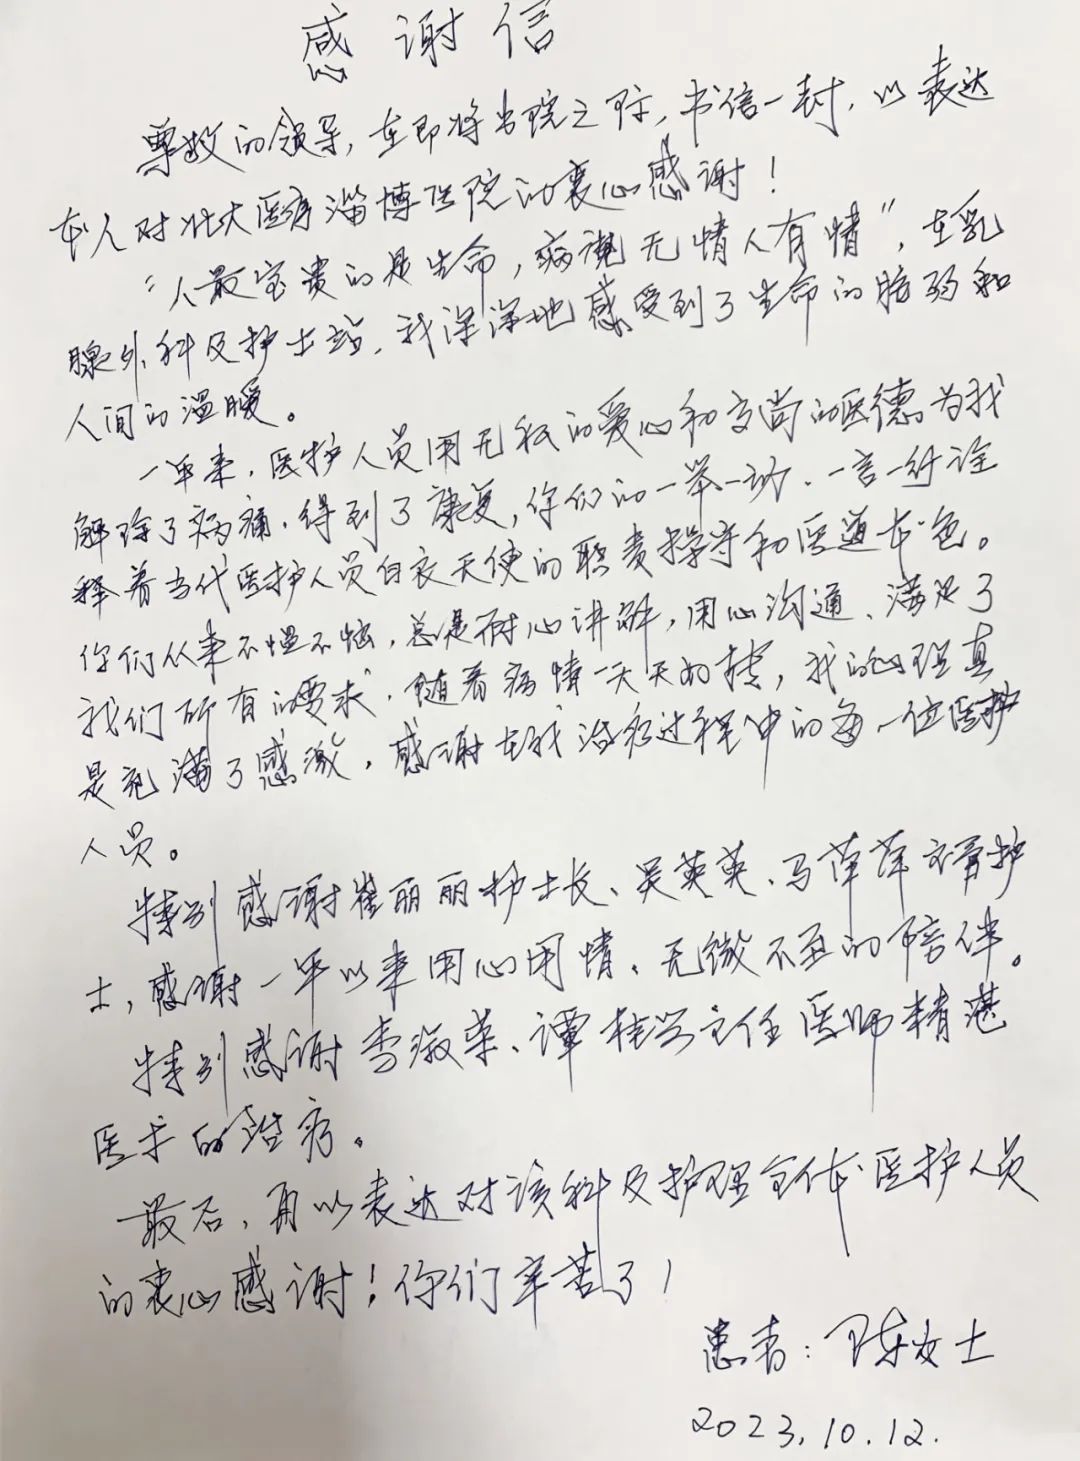 感谢信
尊敬的领导,在即将出院之际,书信一封,以表达
本人对北大医疗淄博医院的衷心感谢!
“人最宝贵的是生命,病魔无情人有情”,在乳
腺外科及护士站,我深深地感受到了生命的脆弱和
人间的温暖。
一年来,医护人员用无私的爱心和高尚的医德为我
解除了病痛,得到了康复,你们的一举一动、一言一行诠
释着当代医护人员白衣天使的职责操守和医道本色。
你们从来不愠不恼,总是耐心讲解,用心沟通、满足了
我们所有的要求,随着病情一天天好转,我的心理真
是充满了感激,感谢在我治疗过程中的每一位医护
人员。
特别感谢崔丽丽护士长、吴英英、马萍萍 护
士,感谢一年以来用心用情、无微不至的陪伴。
特别感谢李淑荣、谭 主任医师精湛
医术的治疗。
最后,再以表达对该科及护理全体医护人员
的衷心感谢!你们辛苦了!
患者:陈女士
2023.10.12.